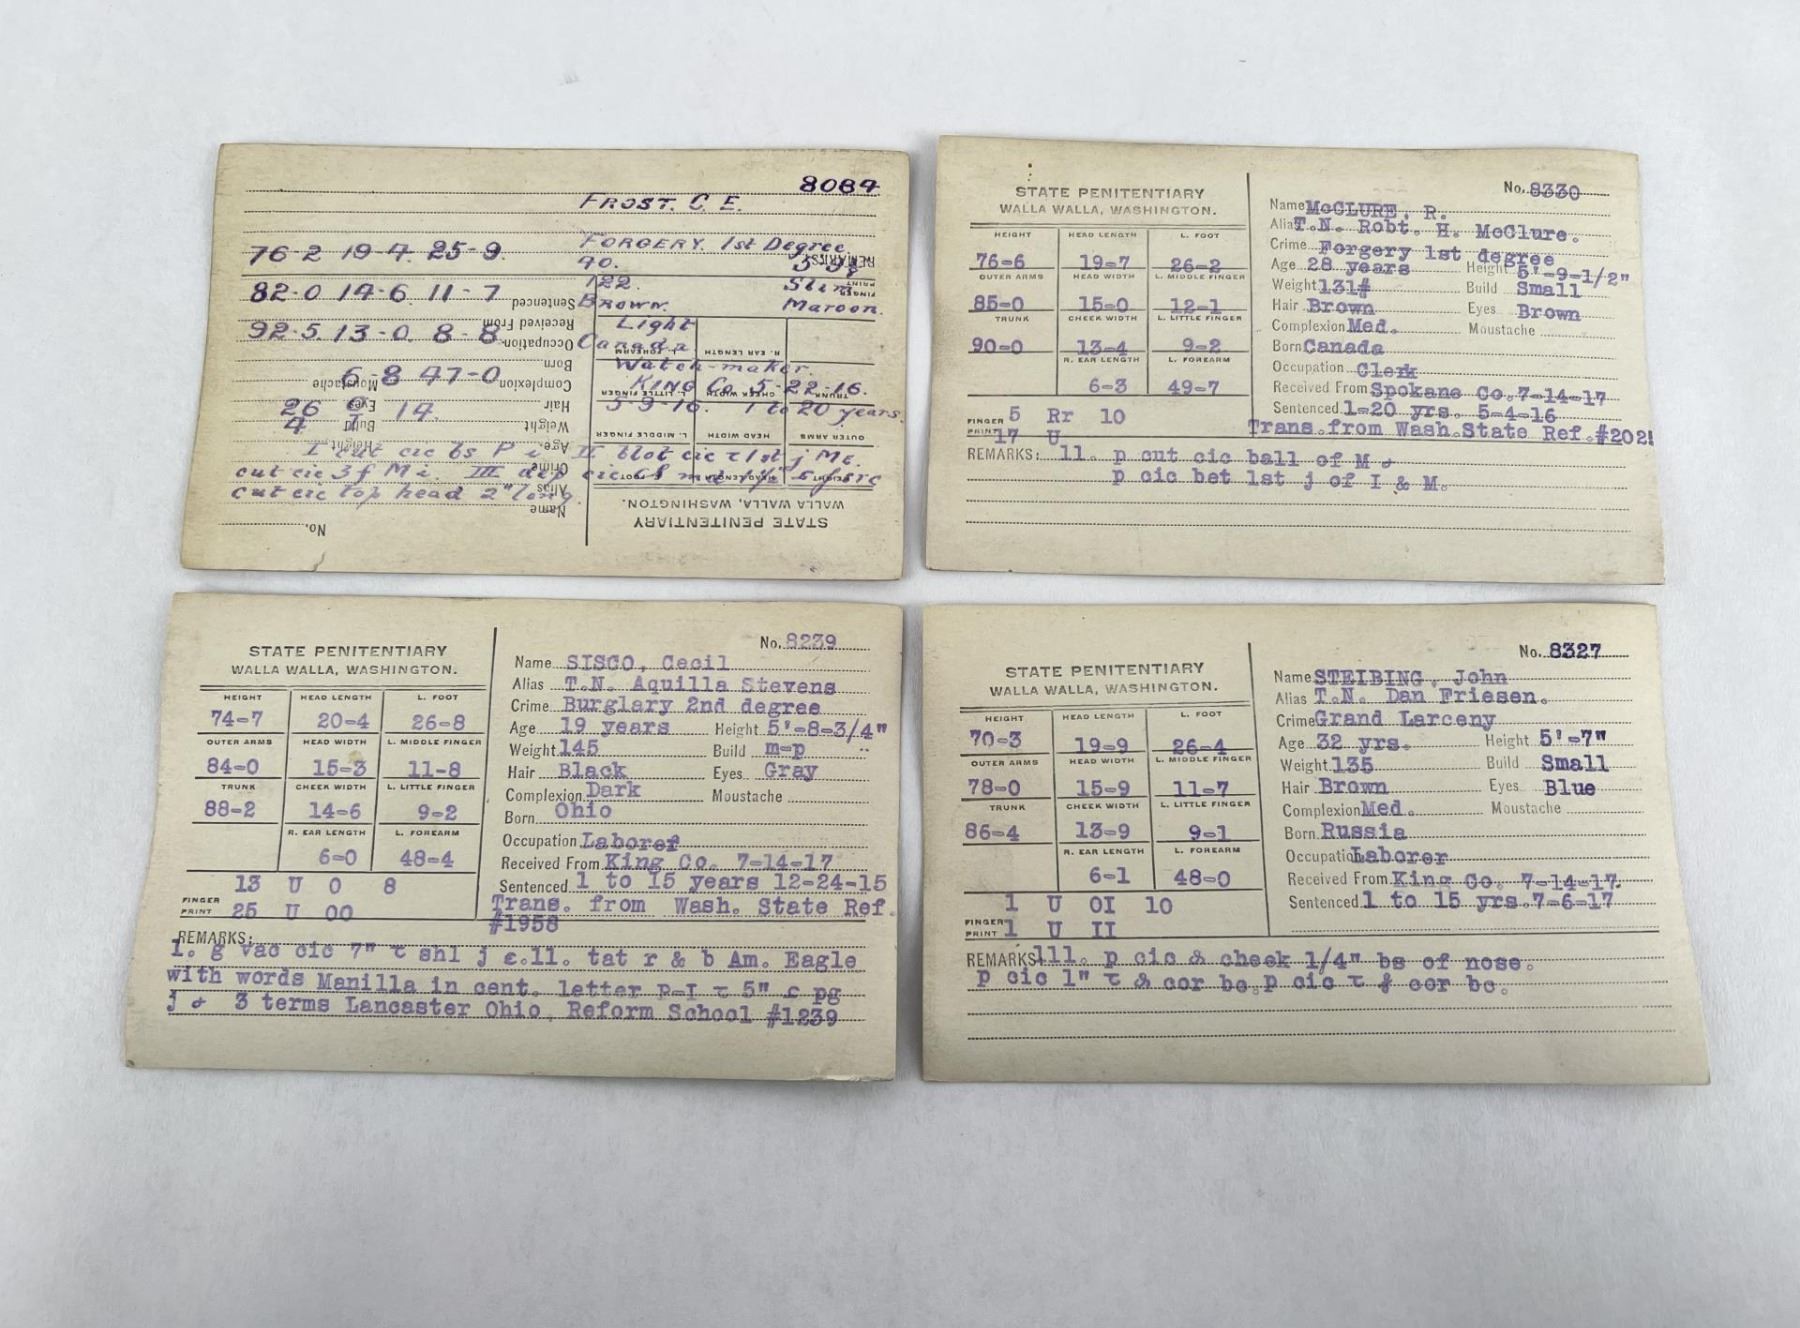 8084
FROST. C. E.
76-2 19-4. 25-9. FORGERY. 1st Degree
REMARKS:
40.
82-0 14-6. 11-7 122. Slim
FINGER PRINT
Sentenced BROWN. Maroon.
Received From
92-5. 13-0. 8-8 Light
Occupation Canada
L. FOREARM R. EAR LENGTH
Born Watch-maker.
6-8 47-0 KING Co. 5-22-16.
Moustache Complexion
L. LITTLE FINGER CHEEK WIDTH TRUNK
26 14. 5-9-16. 1 to 20 years.
Eyes Hair
4
Build Weight
L. MIDDLE FINGER HEAD WIDTH OUTER ARMS
Height Age
I cut cic bs P II blot cic 1st j Me.
cut cic 3f Mi. III dep cic
Crime
cut cic top head 2" long.
Alias
Name
WALLA WALLA, WASHINGTON.
STATE PENITENTIARY
No.
STATE PENITENTIARY
WALLA WALLA, WASHINGTON.
No. 8330
Name McCLURE, R.
Alias T.N. Robt. H. McClure.
Crime Forgery 1st degree
HEIGHT HEAD LENGTH L. FOOT
76-6 19-7 26-2
Age 28 years Height 5'-9-1/2"
OUTER ARMS HEAD WIDTH L. MIDDLE FINGER
Weight 131# Build Small
85-0 15-0 12-1
Hair Brown Eyes Brown
TRUNK CHEEK WIDTH L. LITTLE FINGER
Complexion Med. Moustache
90-0 13-4 9-2
Born Canada
R. EAR LENGTH L. FOREARM
Occupation Clerk
6-3 49-7
Received From Spokane Co. 7-14-17
Sentenced 1-20 yrs. 5-4-16
FINGER PRINT 5 Rr 10
17 U
Trans. from Wash. State Ref. #202!
REMARKS: 11. p cut cic ball of M &
p cic bet 1st j of I & M.
STATE PENITENTIARY
WALLA WALLA, WASHINGTON.
No. 8239
Name SISCO, Cecil
Alias T.N. Aquilla Stevens
HEIGHT HEAD LENGTH L. FOOT
Crime Burglary 2nd degree
74-7 20-4 26-8
Age 19 years Height 5'-8-3/4"
OUTER ARMS HEAD WIDTH L. MIDDLE FINGER
Weight 145 Build m-p
84-0 15-3 11-8
Hair Black Eyes Gray
TRUNK CHEEK WIDTH L. LITTLE FINGER
Complexion Dark Moustache
88-2 14-6 9-2
Born Ohio
R. EAR LENGTH L. FOREARM
Occupation Laborer
6-0 48-4
Received From King Co. 7-14-17
Sentenced 1 to 15 years 12-24-15
FINGER PRINT 13 U O 8
25 U OO
Trans. from Wash. State Ref.
#1958
REMARKS:
1. g vac cic 7" shl j 11. tat r & b Am. Eagle
with words Manilla in cent. letter P-I 5" pg
j & 3 terms Lancaster Ohio, Reform School #1239
STATE PENITENTIARY
WALLA WALLA, WASHINGTON.
No. 8327
Name STEIBING, John
Alias T.N. Dan Friesen.
Crime Grand Larceny
HEIGHT HEAD LENGTH L. FOOT
70-3 19-9 26-4
Age 32 yrs. Height 5'-7"
OUTER ARMS HEAD WIDTH L. MIDDLE FINGER
Weight 135 Build Small
78-0 15-9 11-7
Hair Brown Eyes Blue
TRUNK CHEEK WIDTH L. LITTLE FINGER
Complexion Med. Moustache
86-4 13-9 9-1
Born Russia
R. EAR LENGTH L. FOREARM
Occupation Laborer
6-1 48-0
Received From King Co. 7-14-17.
Sentenced 1 to 15 yrs. 7-6-17
FINGER PRINT 1 U OI 10
1 U II
REMARKS 111. p cic & cheek 1/4" bs of nose.
p cic 1" & cor bc. p cic cor bc.